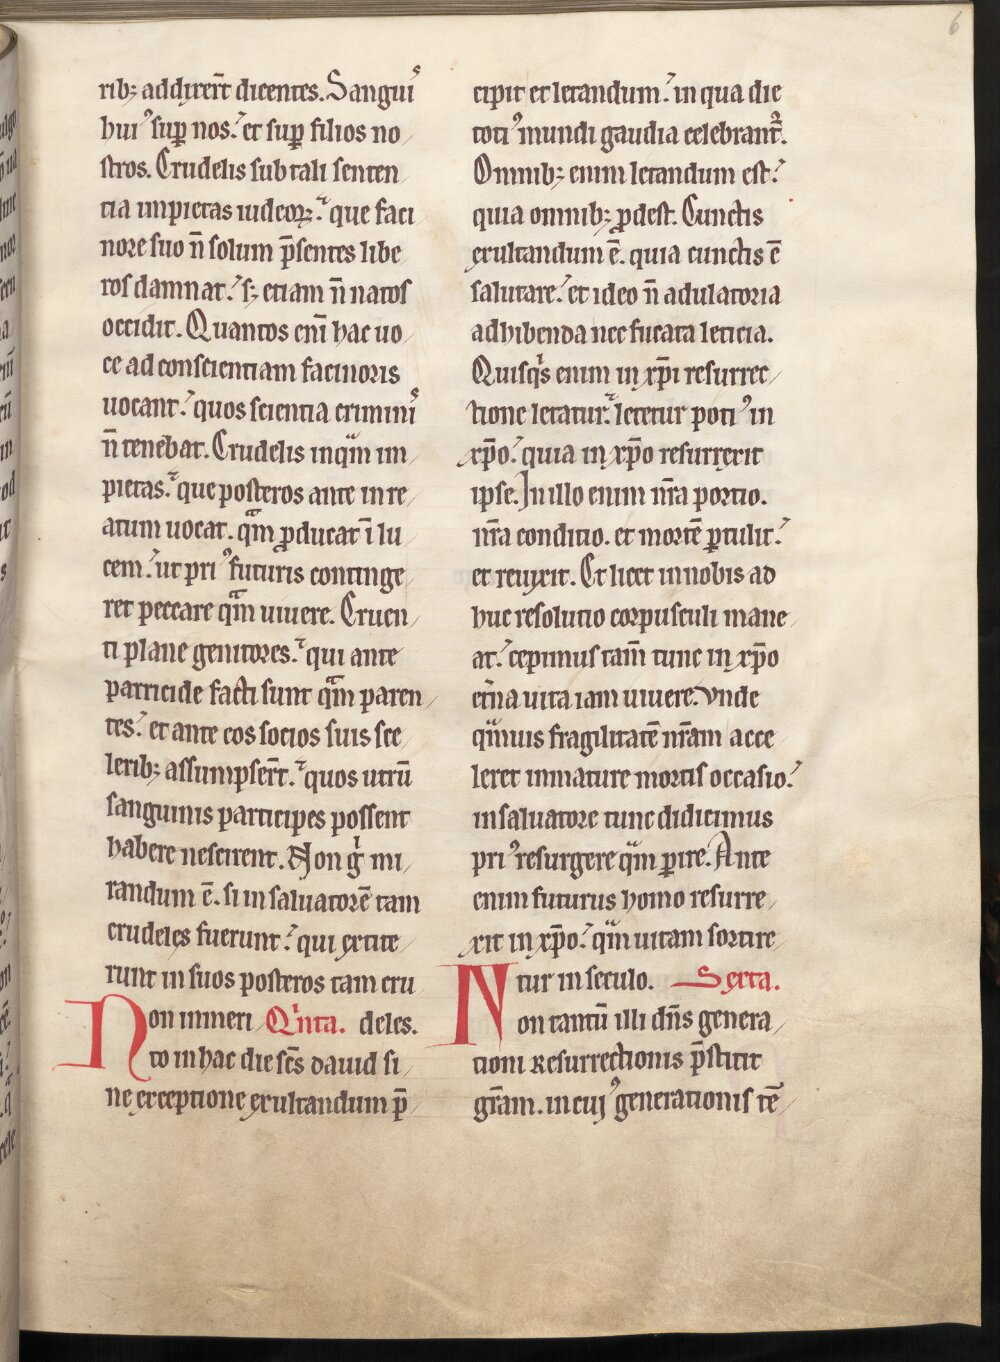 6
ribꝫ addixer̅t dicentes. Sanguiˢ
huiꝰ sup̲ nos.ˀ et sup̲ filios no
stros. Crudelis sub tali senten
tia impietas iudeoꝝ.ˀ que faci
nore suo n̅ solum p̅sentes libe
ros damnat.ˀ sꝫ etiam n̅ natos
occidit. Quantos eni̅ hac uo
ce ad conscientiam facinoris
uocant.ˀ quos scientia criminiˢ
n̅ tenebat. Crudelis inqᵃm im
pietas.ˀ que posteros ante in re
atum uocat. qᵃm ꝓducat i̅ lu
cem.ˀ ut priꝰ futuris continge
ret peccare qᵃm uiuere. Cruen
ti plane genitores.ˀ qui ante
parricide facti sunt qᵃm paren
tes.ˀ et ante eos socios suis sce
leribꝫ assumpser̅t.ˀ quos utru̅
sanguinis participes possent
habere nescirent. Non gͥ mi
randum e̅. si in saluatore̅ tam
crudeles fuerunt.ˀ qui extite
runt in suos posteros tam cru
Non inmeri Qͥnta. deles.
to in hac die sc̅s dauid si
ne exceptione exultandum p̅
cipit et letandum.ˀ in qua die
totiꝰ mundi gaudia celebrant᷑.
Omnibꝫ enim letandum est.ˀ
quia omnibꝫ ꝓdest. Cunctis
exultandum e̅. quia cunctis e̅
salutare.ˀ et ideo n̅ adulatoria
adhibenda nec fucata leticia.
Quisqͥs enim in xp̅i resurrec
tione letatur.ˀ letetur potiꝰ in
xp̅o.ˀ quia in xp̅o resurrexit
ipse. In illo enim nr̅a portio.
nr̅a conditio. et morte̅ ꝑtulit.ˀ
et reuixit. Et licet in nobis ad
huc resolutio corpusculi mane
at.ˀ cepimus tam̅ tunc in xp̅o
et̅na uita iam uiuere. Vnde
qᵃmuis fragilitate̅ nr̅am acce
leret inmature mortis occasio.ˀ
in saluatore tunc didicimus
priꝰ resurgere qᵃm ꝑire. Ante
enim futurus homo resurre
xit in xp̅o.ˀ qᵃm uitam sortire
tur in seculo. Sexta.
Non tantu̅ illi dn̅s genera
tioni Resurrectionis p̅stitit
gr̅am. in cuiꝰ generationis te̅